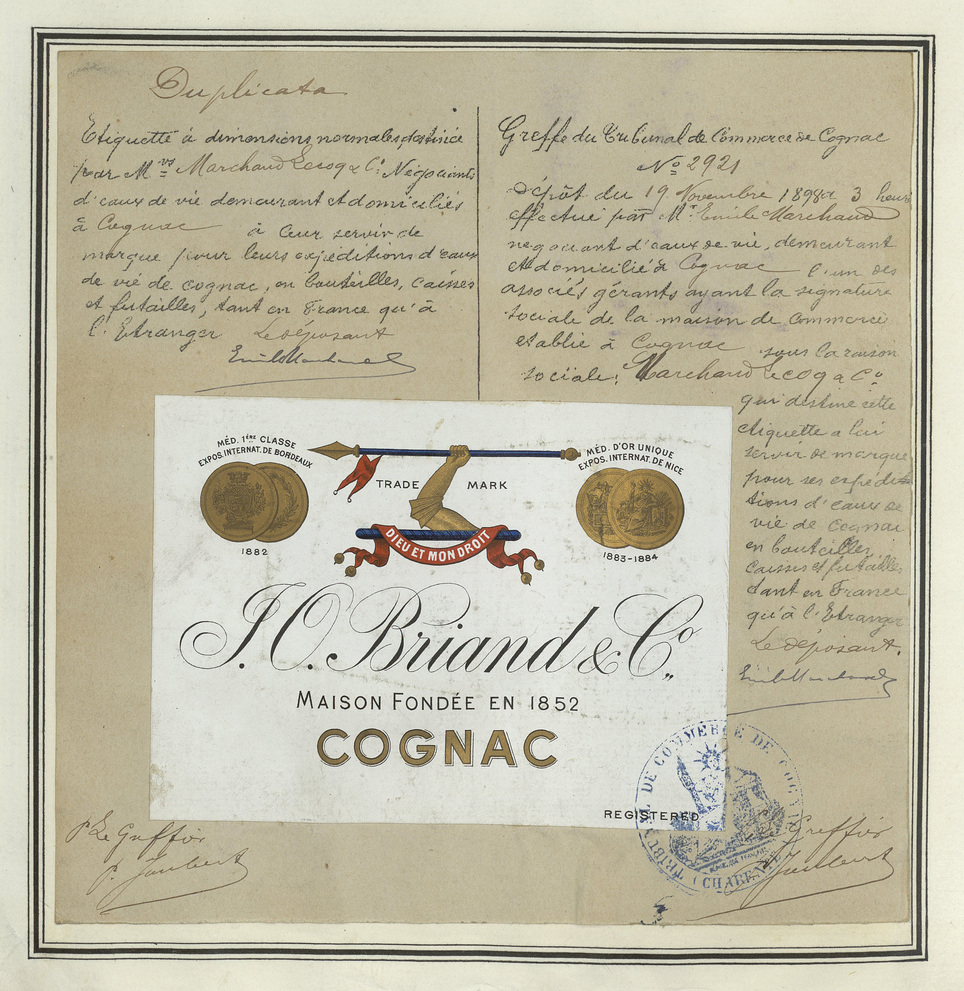 Duplicata
Etiquette à dimensions normales destinée
par M.rs Marchaud Lecoq & Co. Négociants
d'eaux de vie demeurant et domiciliés
à Cognac à leur servir de
marque pour leurs expéditions d'eaux
de vie de cognac, en bouteilles, caisses
et futailles, tant en France qu'à
l'Etranger Le déposant
Greffe du Tribunal de Commerce de Cognac
No 2921
Dépôt du 19 Novembre 1898 à 3 heures
effectué par Mr. Emile Marchaud
negociant d'eaux de vie, demeurant
et domicilié à Cognac l'un des
associés gérants ayant la signature
sociale de la maison de commerce
etablie à Cognac sous la raison
sociale: Marchaud Lecoq & Co.
qui destine cette
étiquette a lui
servir de marque
pour ses expédi-
tions d'eaux de
vie de Cognac
en bouteilles,
caisses et futailles
tant en France
qu'à l'Etranger
Le déposant.
MÉD. 1ÈRE CLASSE
EXPOS. INTERNAT. DE BORDEAUX
1882
TRADE MARK
DIEU ET MON DROIT
MÉD. D'OR UNIQUE
EXPOS. INTERNAT. DE NICE
1883-1884
J.O. Briand & Co.
MAISON FONDÉE EN 1852
COGNAC
REGISTERED
TRIBUNAL DE COMMERCE DE COGNAC
(CHARENTE)
P. Le Greffier
P. Joubert
Le Greffier
Joubert